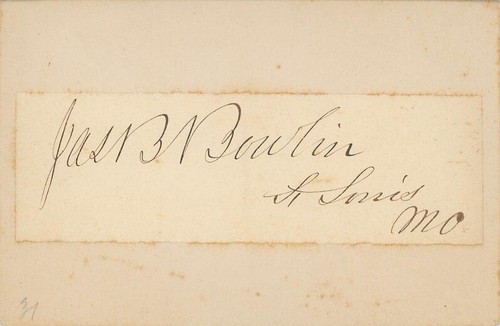 Jas B Bowlin
St Louis
Mo.
31